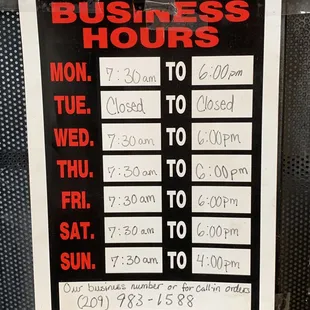 BUSINESS
HOURS
MON. 7:30am TO 6:00pm
TUE. Closed TO Closed
WED. 7:30am TO 6:00pm
THU. 7:30am TO 6:00pm
FRI. 7:30am TO 6:00pm
SAT. 7:30am TO 6:00pm
SUN. 7:30am TO 4:00pm
Our business number or for call-in orders
(209) 983-1588